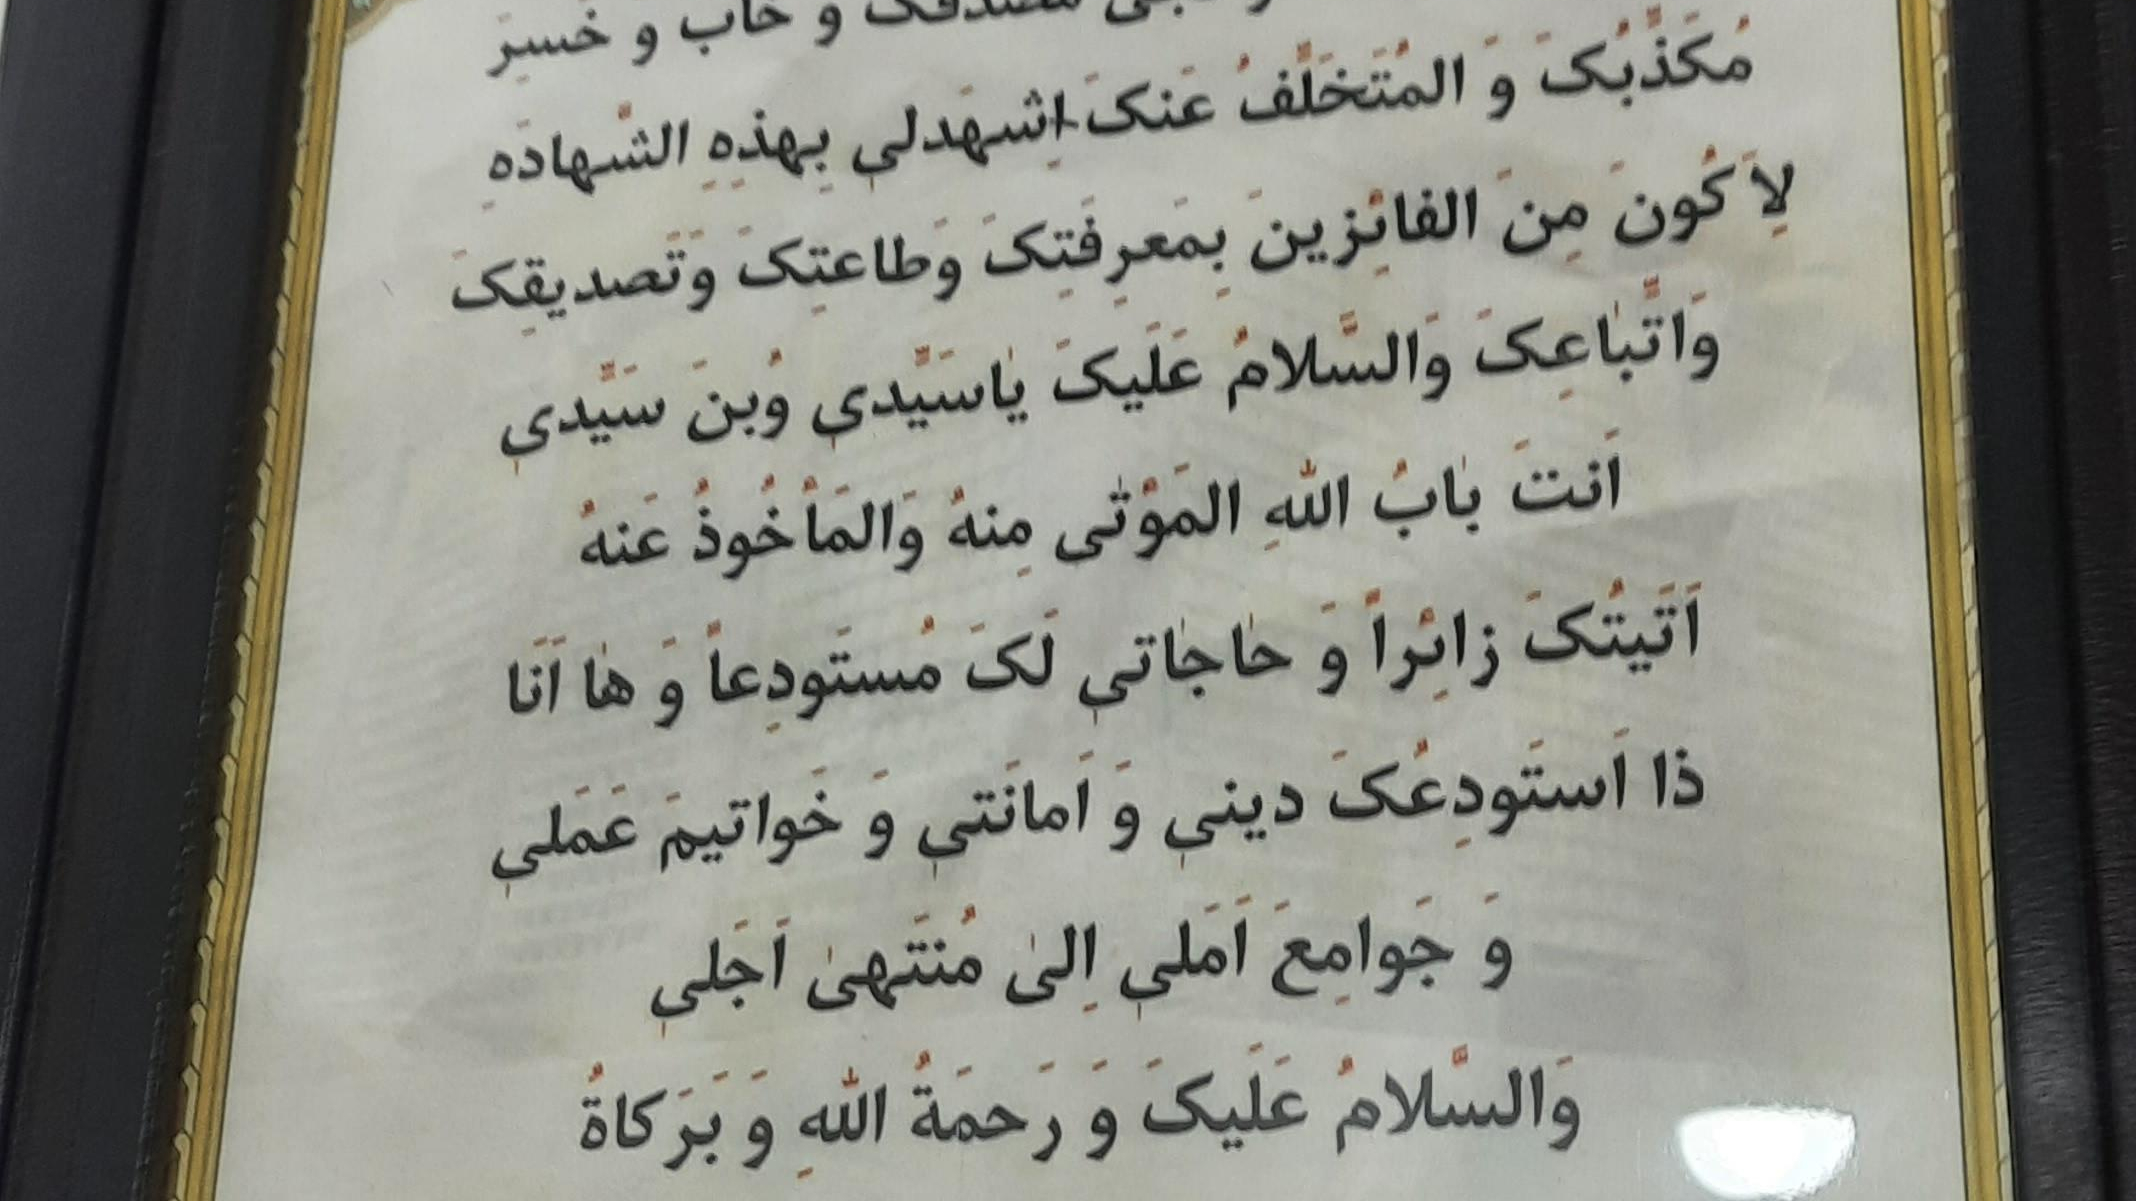 مصدقک و خاب و خَسِرَ
مُکَذِّبُکَ وَ المُتَخَلِّفُ عَنکَ اِشهَدلی بِهذِهِ الشَّهادَهِ
لِاَکُونَ مِنَ الفائِزینَ بِمَعرِفَتِکَ وَطاعتِکَ وَتَصدیقِکَ
وَاتَّبٰاعِکَ وَالسَّلامُ عَلَیکَ یٰاسَیِّدی وُبنَ سَیِّدی
اَنتَ بٰابُ اللهِ المَوْثٰی مِنهُ وَالمَاْخُوذُ عَنهُ
اَتَیتُکَ زائِراً وَ حٰاجٰاتی لَکَ مُستَودِعاً وَ هٰا اَنَا
ذا اَستَودِعُکَ دینی وَ اَمانَتی وَ خَواتیمَ عَمَلی
وَ جَوامِعَ اَمَلی اِلیٰ مُنتَهیٰ اَجَلی
وَالسَّلامُ عَلَیکَ وَ رَحمَةُ اللهِ وَ بَرَکاةُ